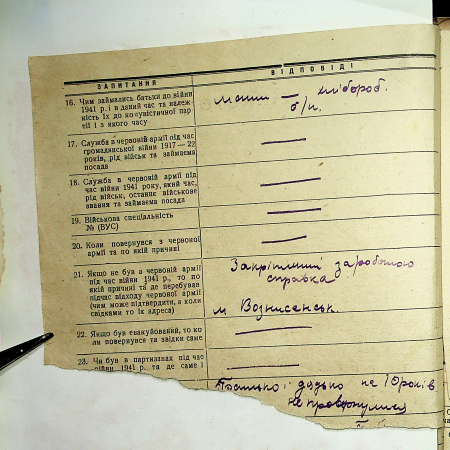 ЗАПИТАННЯ
ВІДПОВІДІ
16. Чим займались батьки до війни
1941 р. і в даний час та належ-
ність їх до комуністичної пар-
тії і з якого часу
хлібороб.
б/п.
17. Служба в червоній армії під час
громадянської війни 1917—22
років, рід військ та займаєма
посада
18. Служба в червоній армії під
час війни 1941 року, який час,
рід військ, останнє військове
звання та займаєма посада
19. Військова спеціальність
№ (ВУС)
20. Коли повернувся з червоної
армії та по якій причині
21. Якщо не був в червоній армії
під час війни 1941 р., то по
якій причині та де перебував
підчас відходу червоної армії
(чим може підтвердити, а коли
свідками то їх адреса)
справка
м Вознисенськ.
22. Якщо був евакуйований, то ко-
ли повернувся та звідки саме
23. Чи був в партизанах під час
війни 1941 р. та де саме і
дядько не 10 років
не